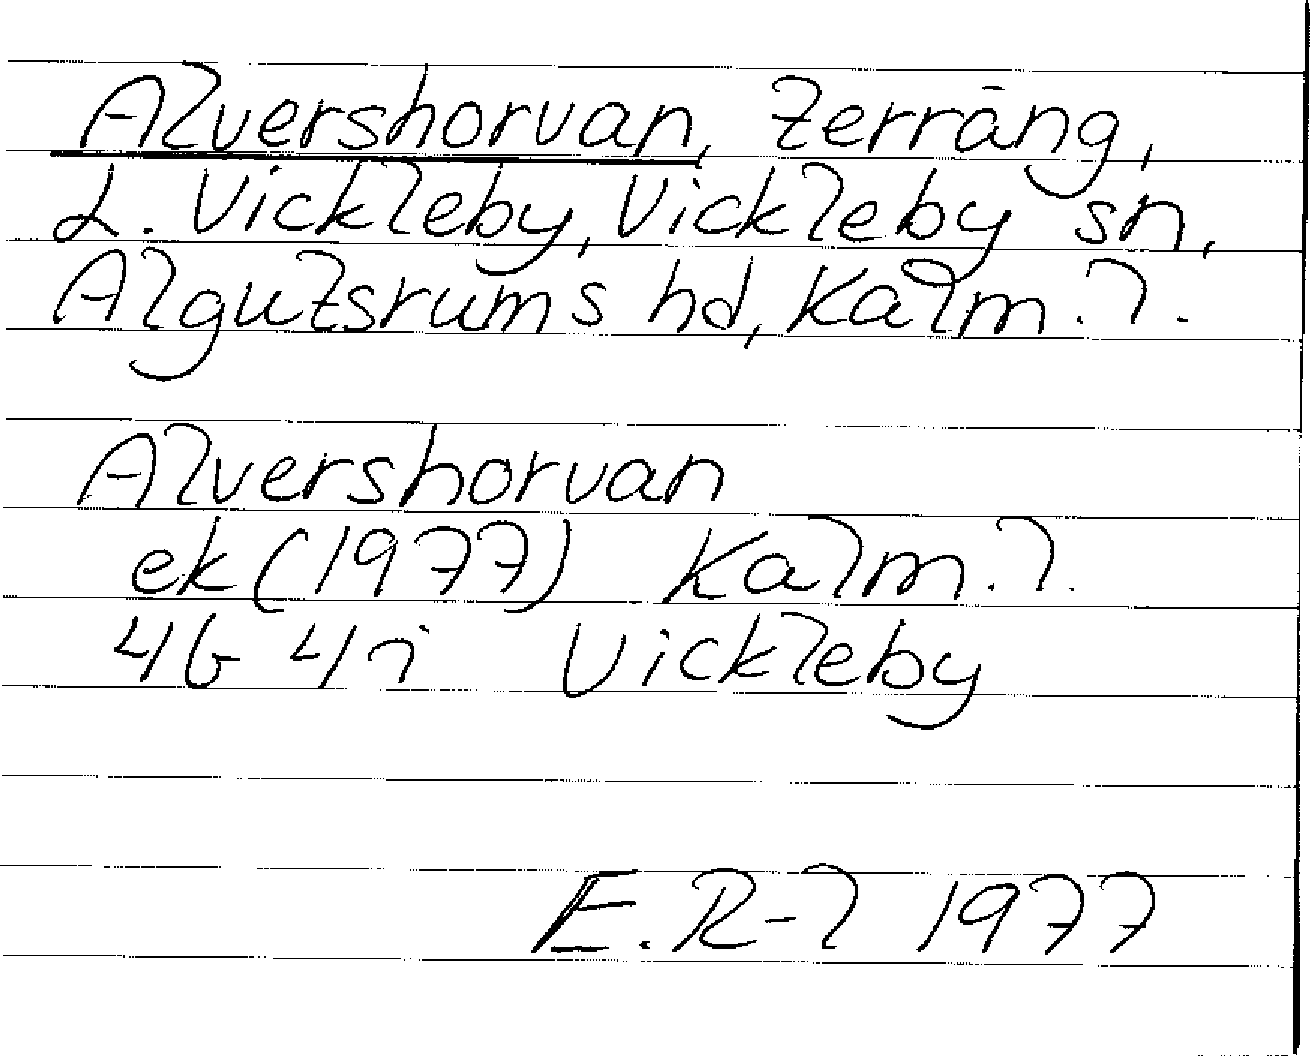 Alvershorvan, terräng,
L. Vickleby, Vickleby sn,
Algutsrums hd, Kalm. l.
Alvershorvan
ek (1977) Kalm. l.
4G 4i Vickleby
E. R-l 1977